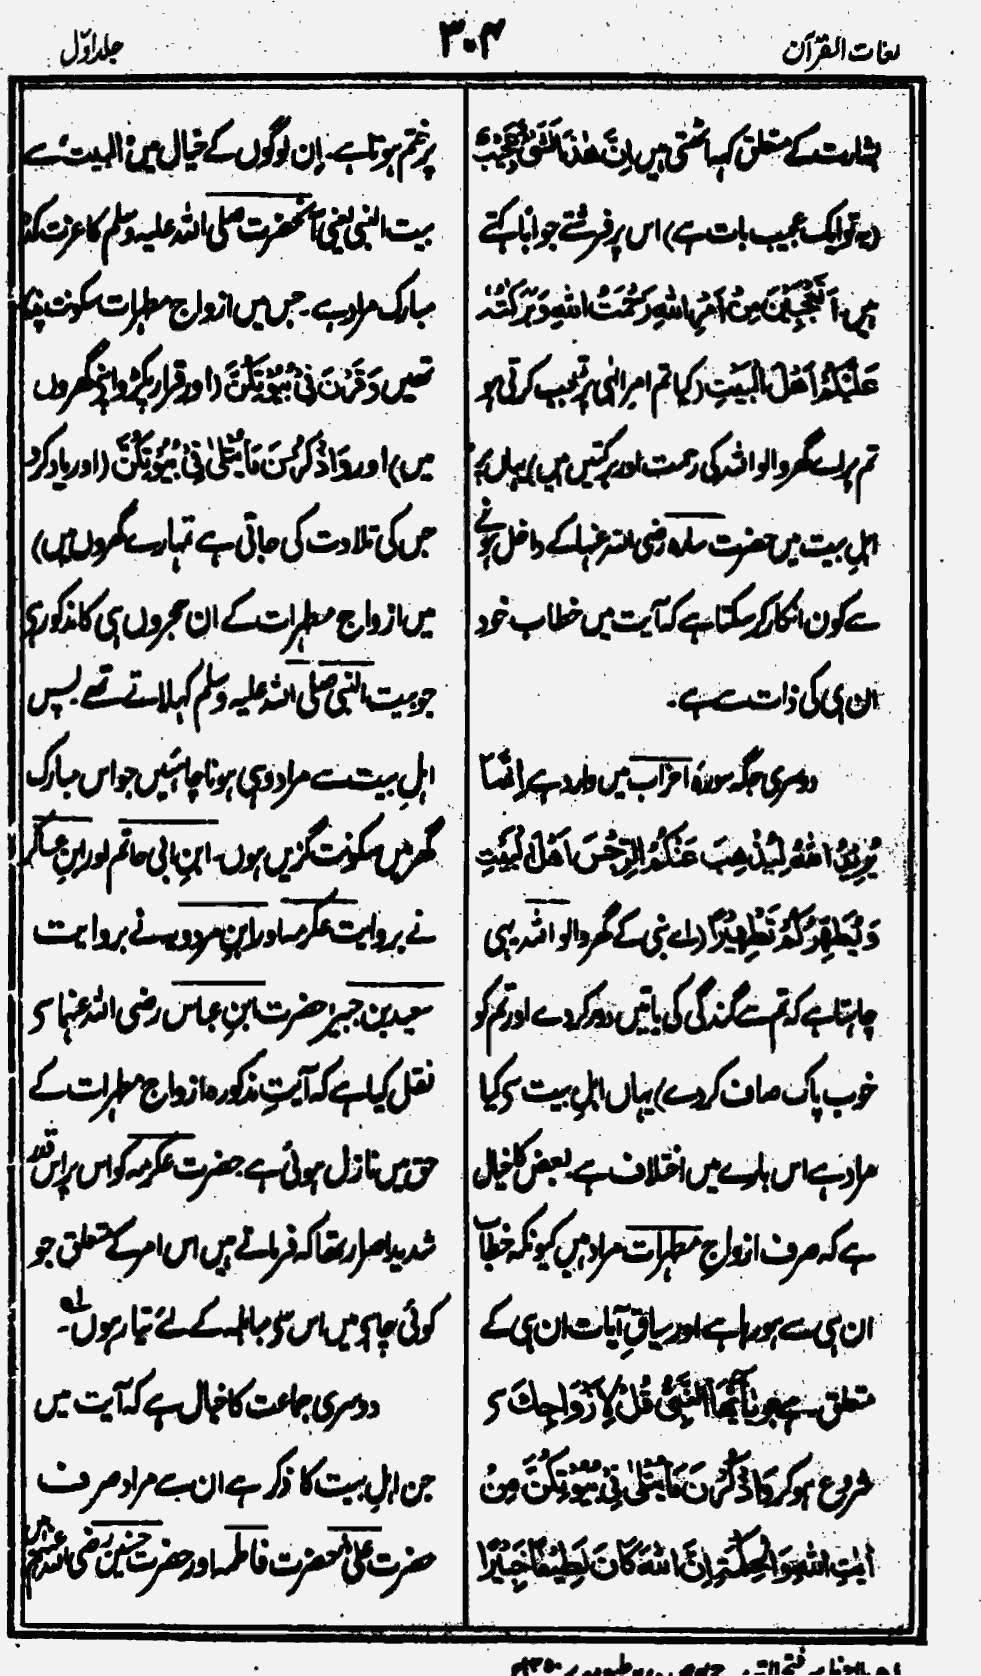 لغات القرآن
۳۰۴
جلد اوّل
بشارت کے متعلق کہہ اٹھتی ہیں اِنَّ هٰذَا لَشَیْءٌ عَجِیْبٌ
(یہ تو ایک عجیب بات ہے) اس پر فرشتے جواباً کہتے
ہیں۔ اَتَعْجَبِیْنَ مِنْ اَمْرِ اللّٰهِ رَحْمَتُ اللّٰهِ وَبَرَكٰتُهٗ
عَلَیْكُمْ اَهْلَ الْبَیْتِ (کیا تم امر الٰہی پر تعجب کرتی ہو
تم پر اے گھر والو اللہ کی رحمت اور برکتیں ہیں) یہاں پر
اہلِ بیت میں حضرت سارہ رضی اللہ عنہا کے داخل ہونے
سے کون انکار کر سکتا ہے کہ آیت میں خطاب خود
ان ہی کی ذات سے ہے۔
دوسری جگہ سورۂ احزاب میں وارد ہے اِنَّمَا
یُرِیْدُ اللّٰهُ لِیُذْهِبَ عَنْكُمُ الرِّجْسَ اَهْلَ الْبَیْتِ
وَیُطَهِّرَكُمْ تَطْهِیْرًا (اے نبی کے گھر والو اللہ یہی
چاہتا ہے کہ تم سے گندگی کی باتیں دور کر دے اور تم کو
خوب پاک صاف کر دے) یہاں اہلِ بیت سے کیا
مراد ہے اس بارے میں اختلاف ہے۔ بعض کا خیال
ہے کہ صرف ازواجِ مطہرات مراد ہیں کیونکہ خطاب
ان ہی سے ہو رہا ہے اور سیاقِ آیات ان ہی کے
متعلق ہے جو یٰۤاَیُّهَا النَّبِیُّ قُلْ لِّاَزْوَاجِكَ سے
شروع ہو کر وَاذْكُرْنَ مَا یُتْلٰی فِیْ بُیُوْتِكُنَّ مِنْ
اٰیٰتِ اللّٰهِ وَالْحِكْمَةِ اِنَّ اللّٰهَ كَانَ لَطِیْفًا خَبِیْرًا
پر ختم ہوتا ہے۔ اِن لوگوں کے خیال میں البیت سے
بیت النبی یعنی آنحضرت صلی اللہ علیہ وسلم کا عزت کدۂ
مبارک مراد ہے۔ جس میں ازواج مطہرات سکونت پذیر
تھیں وَقَرْنَ فِیْ بُیُوْتِكُنَّ (اور قرار پکڑو اپنے گھروں
میں) اور وَاذْكُرْنَ مَا یُتْلٰی فِیْ بُیُوْتِكُنَّ (اور یاد کرو
جس کی تلاوت کی جاتی ہے تمہارے گھروں میں)
میں ازواج مطہرات کے ان حجروں ہی کا مذکور ہے
جو بیت النبی صلی اللہ علیہ وسلم کہلاتے تھے پس
اہلِ بیت سے مراد وہی ہونا چاہئیں جو اس مبارک
گھر میں سکونت گزیں ہوں۔ ابنِ ابی حاتم اور ابنِ عساکر
نے بروایت عکرمہ اور ابنِ مردویہ نے بروایت
سعید بن جبیر حضرت ابنِ عباس رضی اللہ عنہما سے
نقل کیا ہے کہ آیتِ مذکورہ ازواج مطہرات کے
حق میں نازل ہوئی ہے حضرت عکرمہ کو اس پر اس قدر
شدید اصرار تھا کہ فرماتے ہیں اس امر کے متعلق جو
کوئی چاہے میں اس سے مباہلہ کے لئے تیار ہوں۔ لہ
دوسری جماعت کا خیال ہے کہ آیت میں
جن اہلِ بیت کا ذکر ہے ان سے مراد صرف
حضرت علی حضرت فاطمہ اور حضرت حسنین رضی اللہ عنہم ہیں